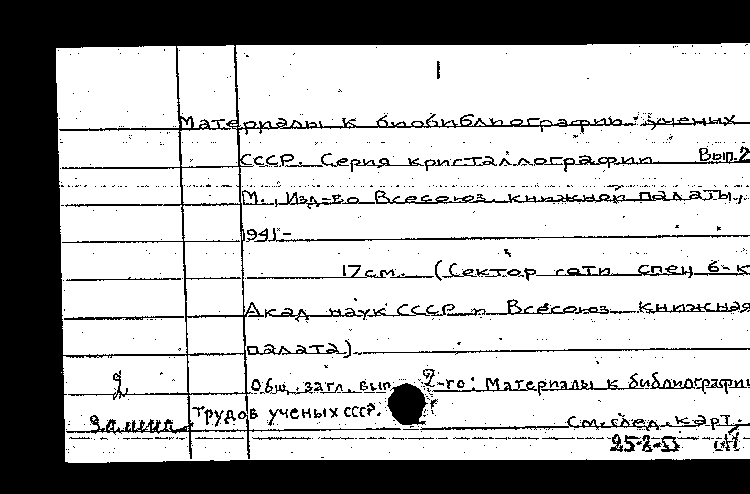 Материалы к биобиблиографии ученых
СССР. Серия кристаллографии Вып.2
М., Изд-во Всесоюз. книжной палаты,
1941-
17см. (Сектор сети спец б-к
Акад наук СССР и Всесоюз. книжная
палата)
2 Общ. загл. вып. 2-го: Материалы к библиографии
Замена трудов ученых СССР.
См. след. карт.
25-2-53